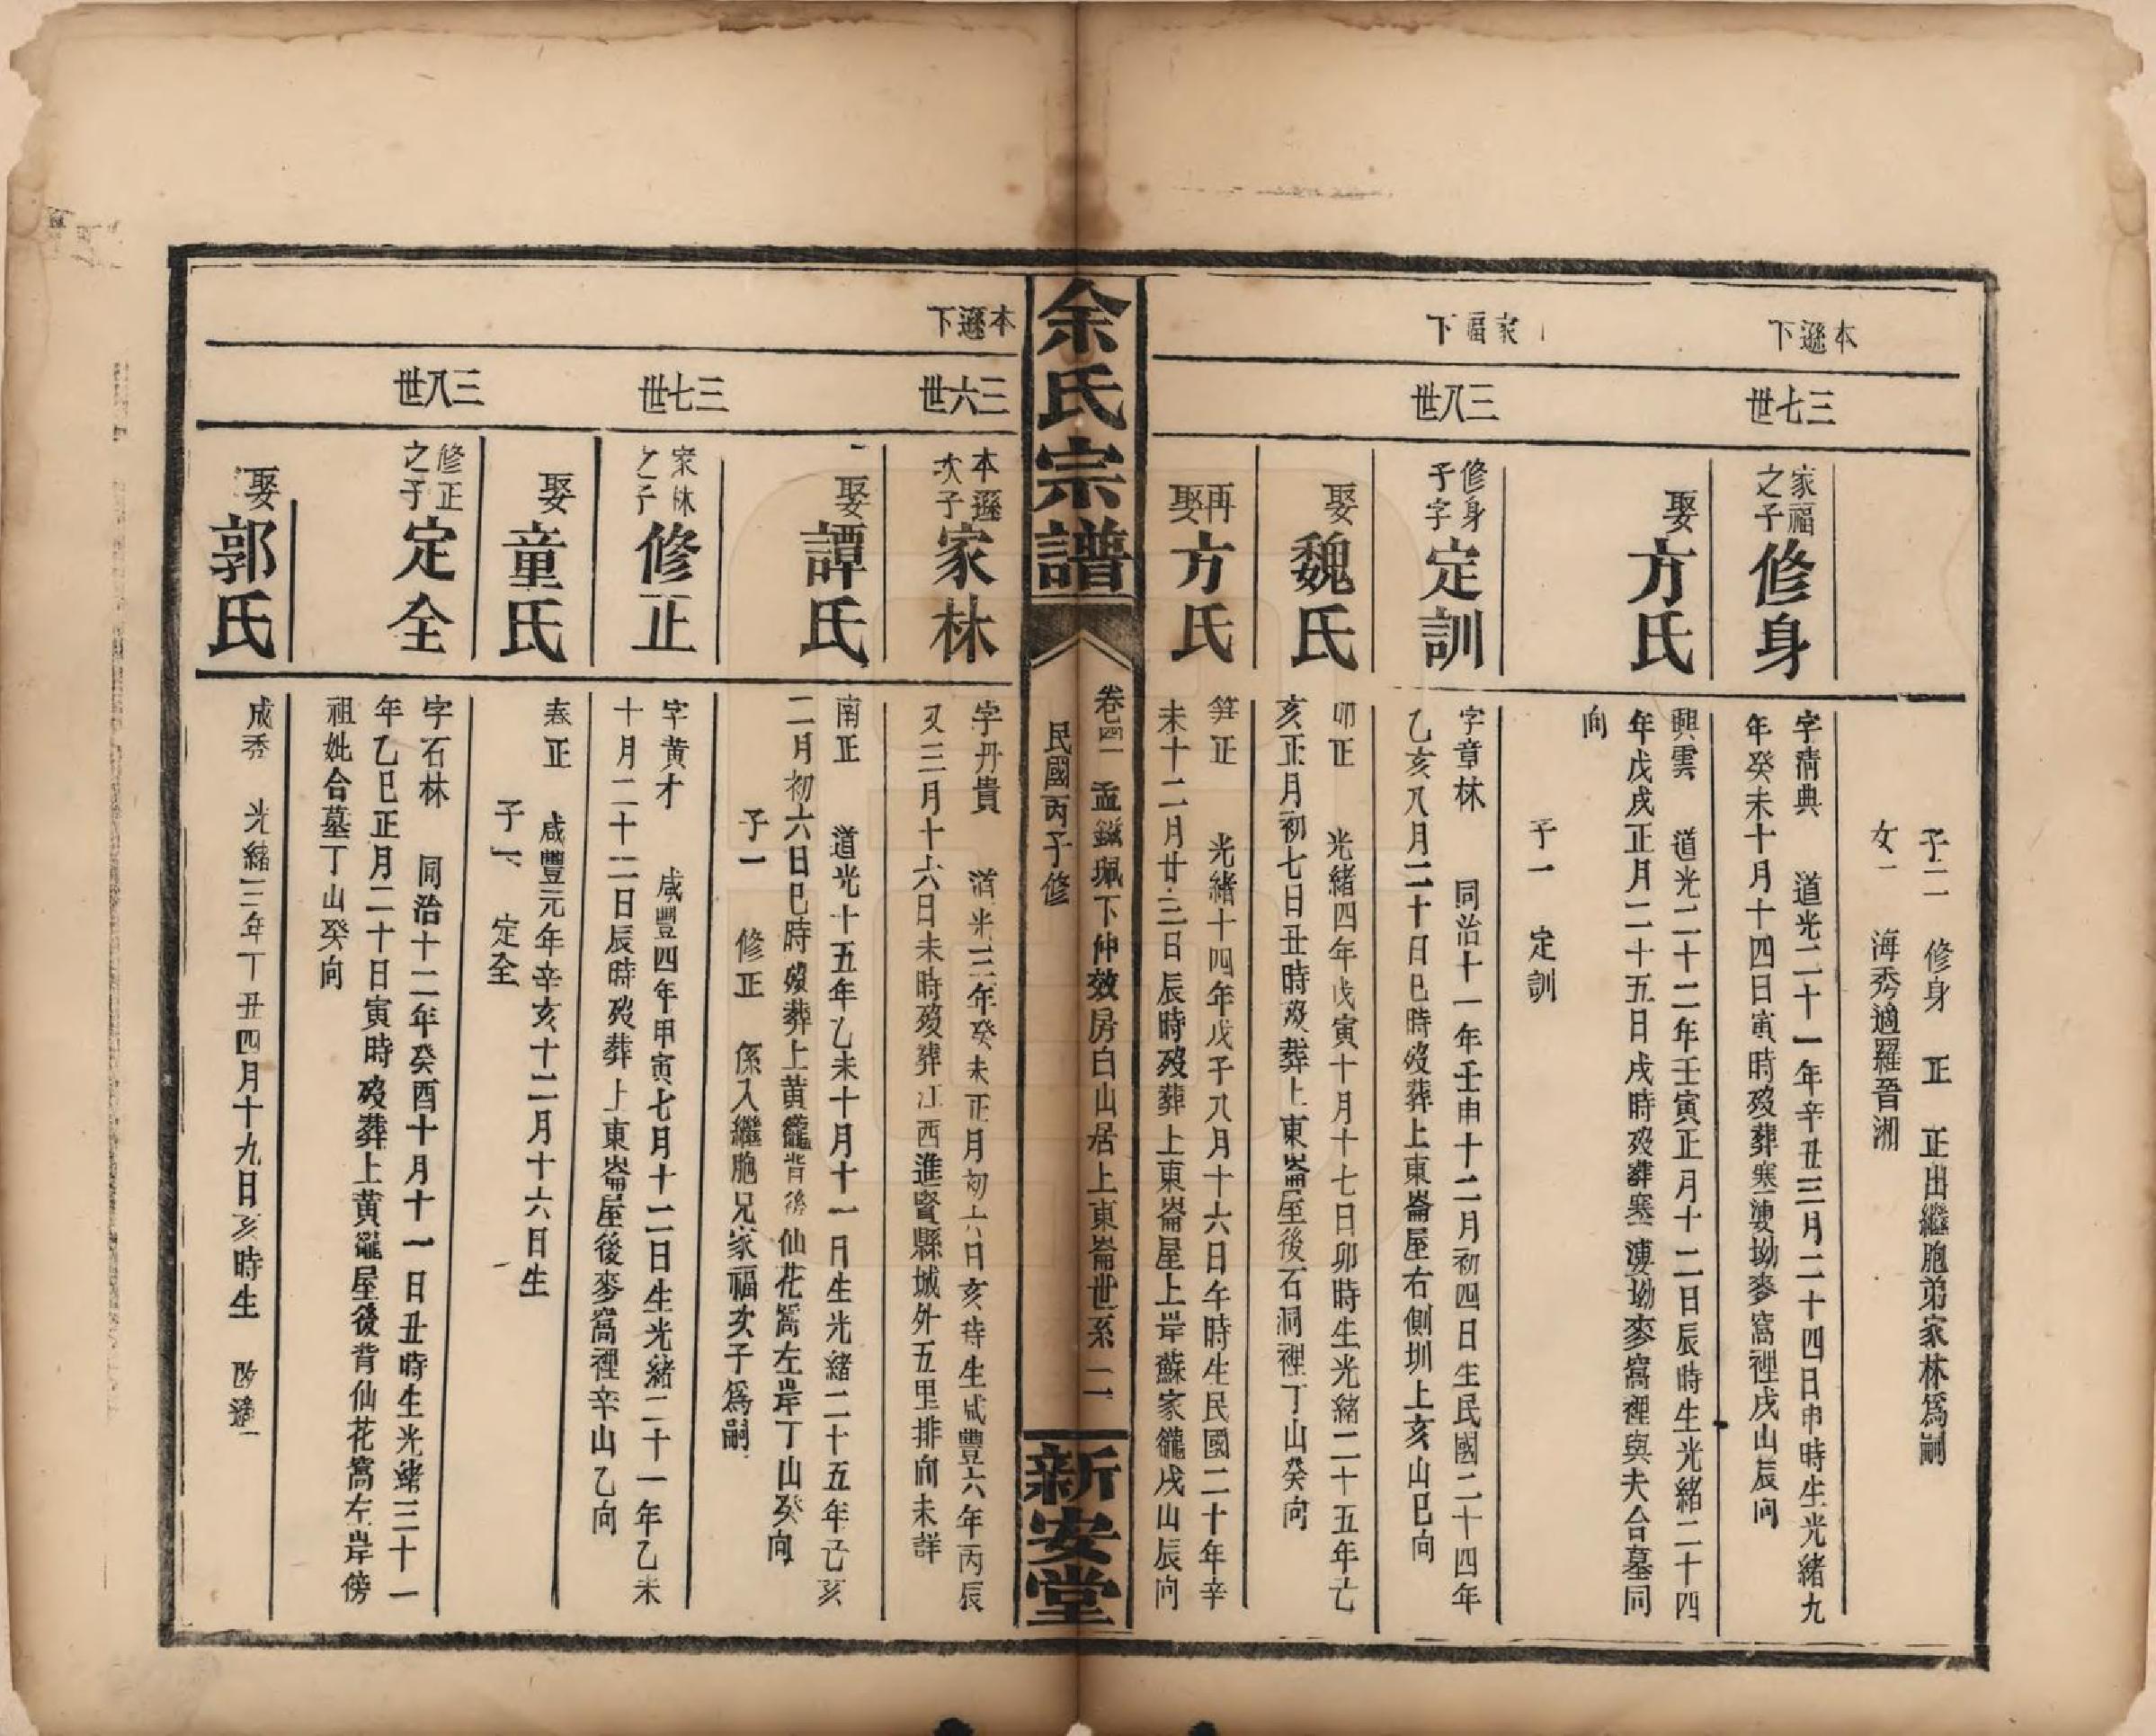 本遜下
三七世
子二 修身 正 正出繼胞弟家林爲嗣
女一 海秀適羅晉湘
家福之子 修身
字淸典 道光二十一年辛丑三月二十四日申時生光緒九
年癸未十月十四日寅時歿葬寒婆坳麥窩裡戌山辰向
娶 方氏
興雲 道光二十二年壬寅正月十二日辰時生光緒二十四
年戊戌正月二十五日戌時歿葬寒婆坳麥窩裡與夫合墓同
向
子一 定訓
家福下
三八世
修身子字 定訓
字章林 同治十一年壬申十二月初四日生民國二十四年
乙亥八月二十日巳時歿葬上東崙屋右側圳上亥山巳向
娶 魏氏
卯正 光緒四年戊寅十月十七日卯時生光緒二十五年己
亥正月初七日丑時歿葬上東崙屋後石洞裡丁山癸向
再娶 方氏
笄正 光緒十四年戊子八月十六日午時生民國二十年辛
未十二月廿三日辰時歿葬上東崙屋上岸蘇家巃戌山辰向
余氏宗譜
卷四一 孟鎡珮下仲效房白山居上東崙世系 二
民國丙子修
新安堂
本遜下
三六世
本遜次子 家林
字丹貴 道光三年癸未正月初六日亥時生咸豐六年丙辰
又三月十六日未時歿葬江西進賢縣城外五里排向未詳
娶 譚氏
南正 道光十五年乙未十月十一日生光緒二十五年己亥
二月初六日巳時歿葬上黃巃背後仙花窩左岸丁山癸向
子一 修正 係入繼胞兄家福次子爲嗣
三七世
家林之子 修正
字黃才 咸豐四年甲寅七月十二日生光緒二十一年乙未
十月二十二日辰時歿葬上東崙屋後麥窩裡辛山乙向
娶 童氏
春正 咸豐元年辛亥十二月十六日生
子一 定全
三八世
修正之子 定全
字石林 同治十二年癸酉十月十一日丑時生光緒三十一
年乙巳正月二十日寅時歿葬上黃巃屋後背仙花窩左岸傍
祖妣合墓丁山癸向
娶 郭氏
成秀 光緒三年丁丑四月十九日亥時生 改適